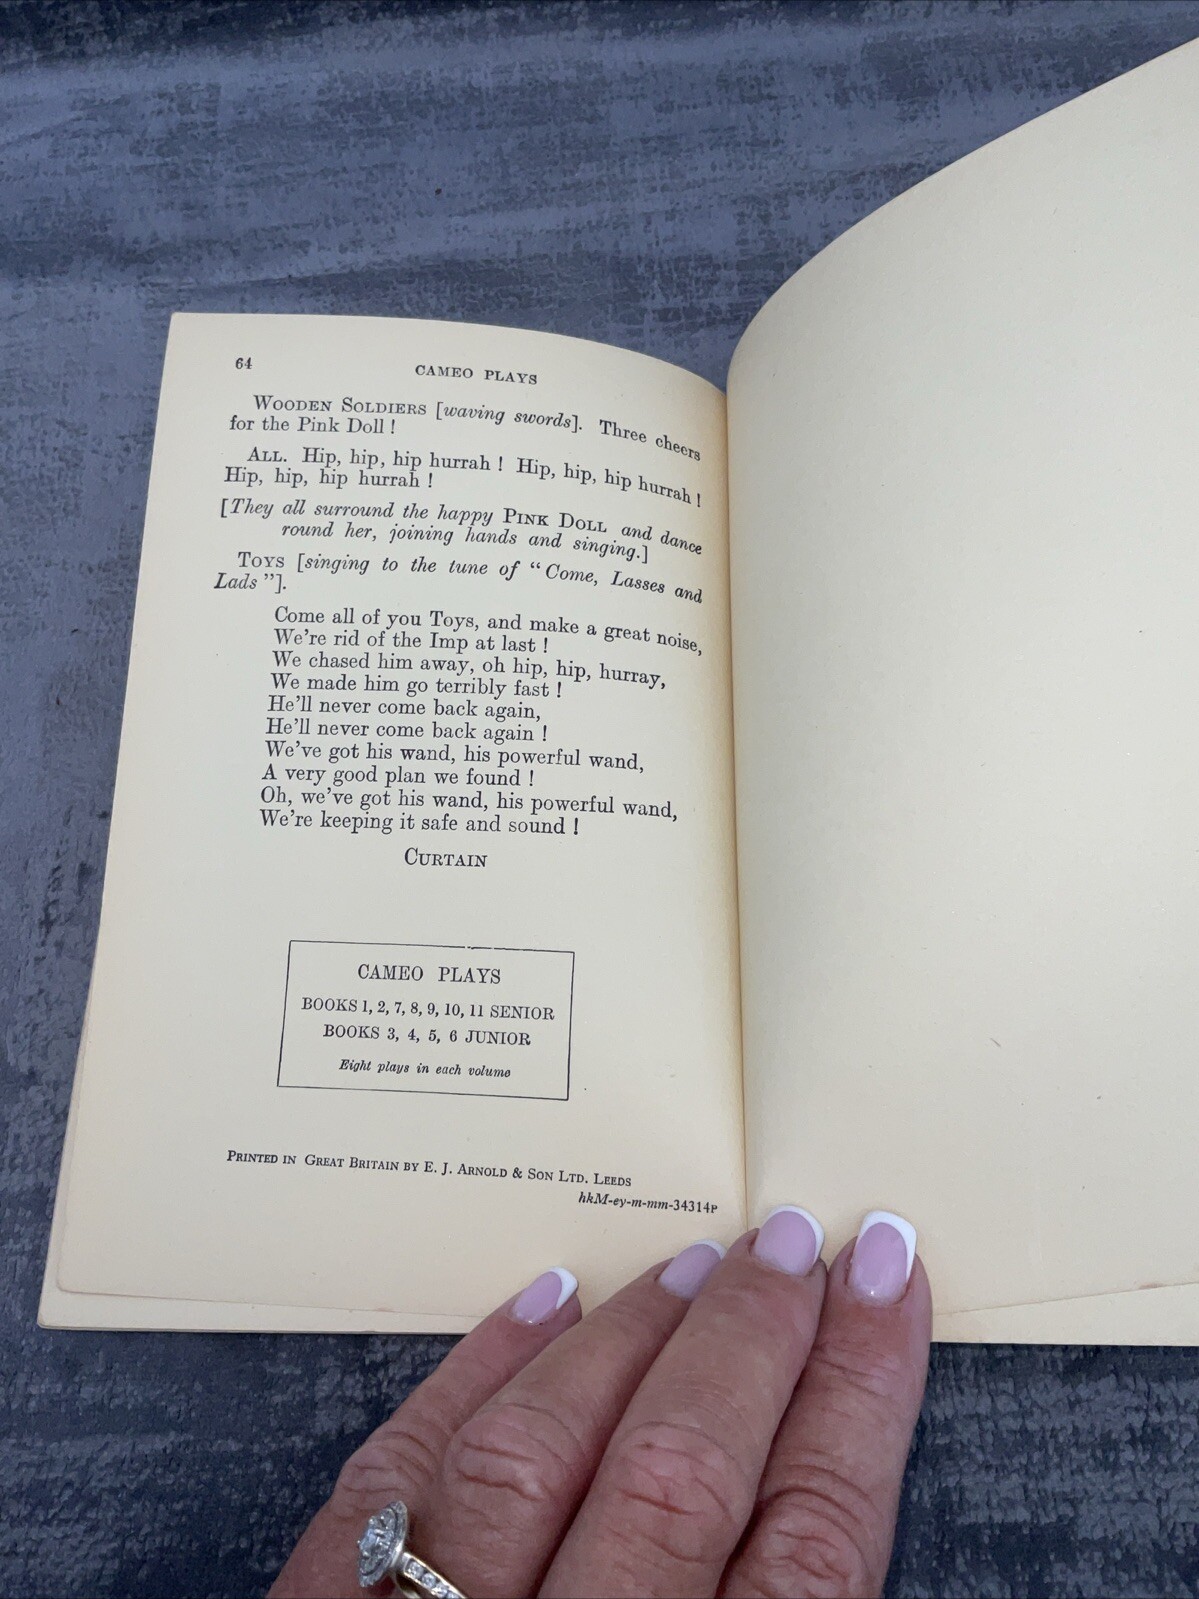 64
CAMEO PLAYS
WOODEN SOLDIERS [waving swords]. Three cheers
for the Pink Doll !
ALL. Hip, hip, hip hurrah ! Hip, hip, hip hurrah !
Hip, hip, hip hurrah !
[They all surround the happy PINK DOLL and dance
round her, joining hands and singing.]
TOYS [singing to the tune of “Come, Lasses and
Lads”].
Come all of you Toys, and make a great noise,
We're rid of the Imp at last !
We chased him away, oh hip, hip, hurray,
We made him go terribly fast !
He'll never come back again,
He'll never come back again !
We've got his wand, his powerful wand,
A very good plan we found !
Oh, we've got his wand, his powerful wand,
We're keeping it safe and sound !
CURTAIN
CAMEO PLAYS
BOOKS 1, 2, 7, 8, 9, 10, 11 SENIOR
BOOKS 3, 4, 5, 6 JUNIOR
Eight plays in each volume
PRINTED IN GREAT BRITAIN BY E. J. ARNOLD & SON LTD. LEEDS
hkM-ey-m-mm-34314P